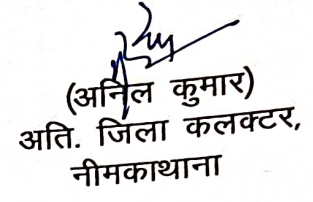 (अनिल कुमार)
अति. जिला कलक्टर,
नीमकाथाना